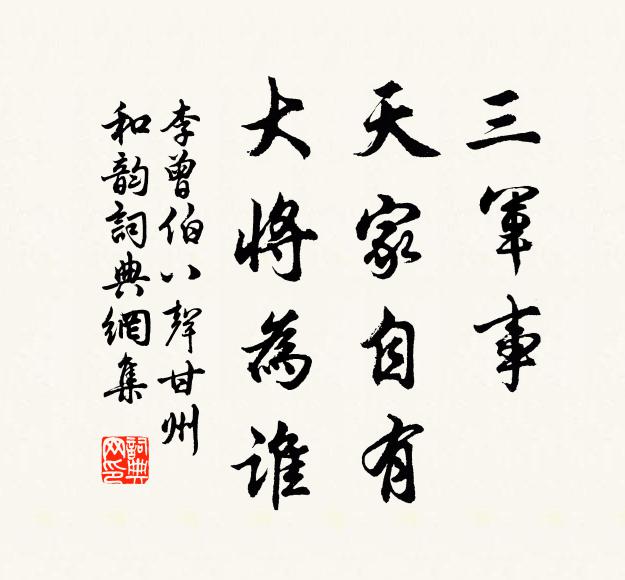 三軍事
天家自有
大將為誰
李曾伯八聲甘州
和韵詞典網集
詞典網印